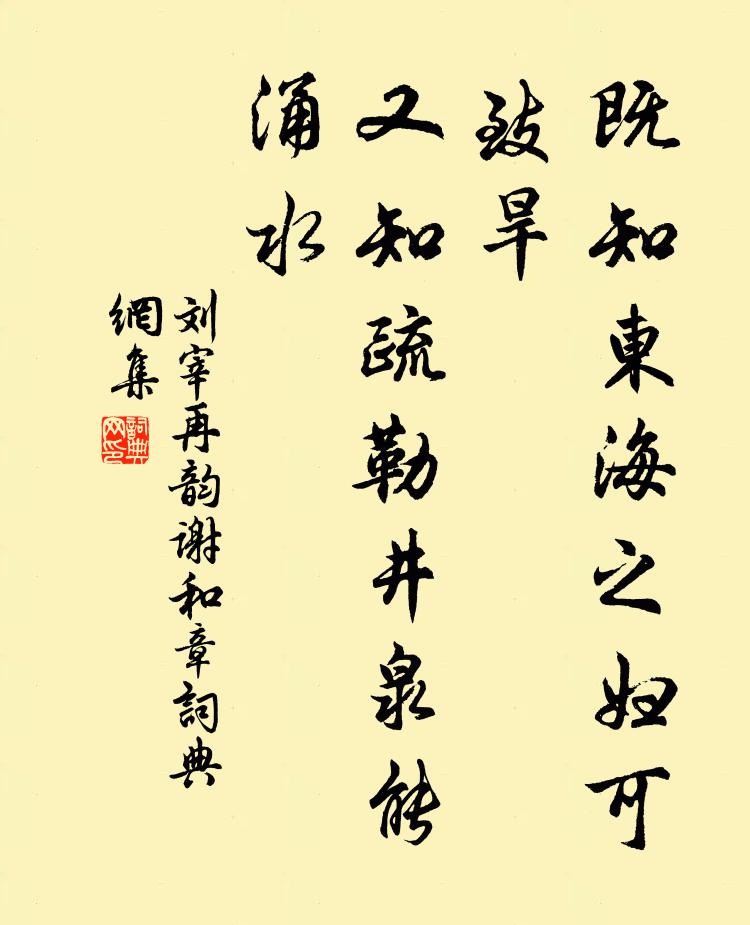 既知東海之妇可
致旱
又知疏勒井泉能
涌水
刘宰再韵谢和章詞典
網集
詞典
网印